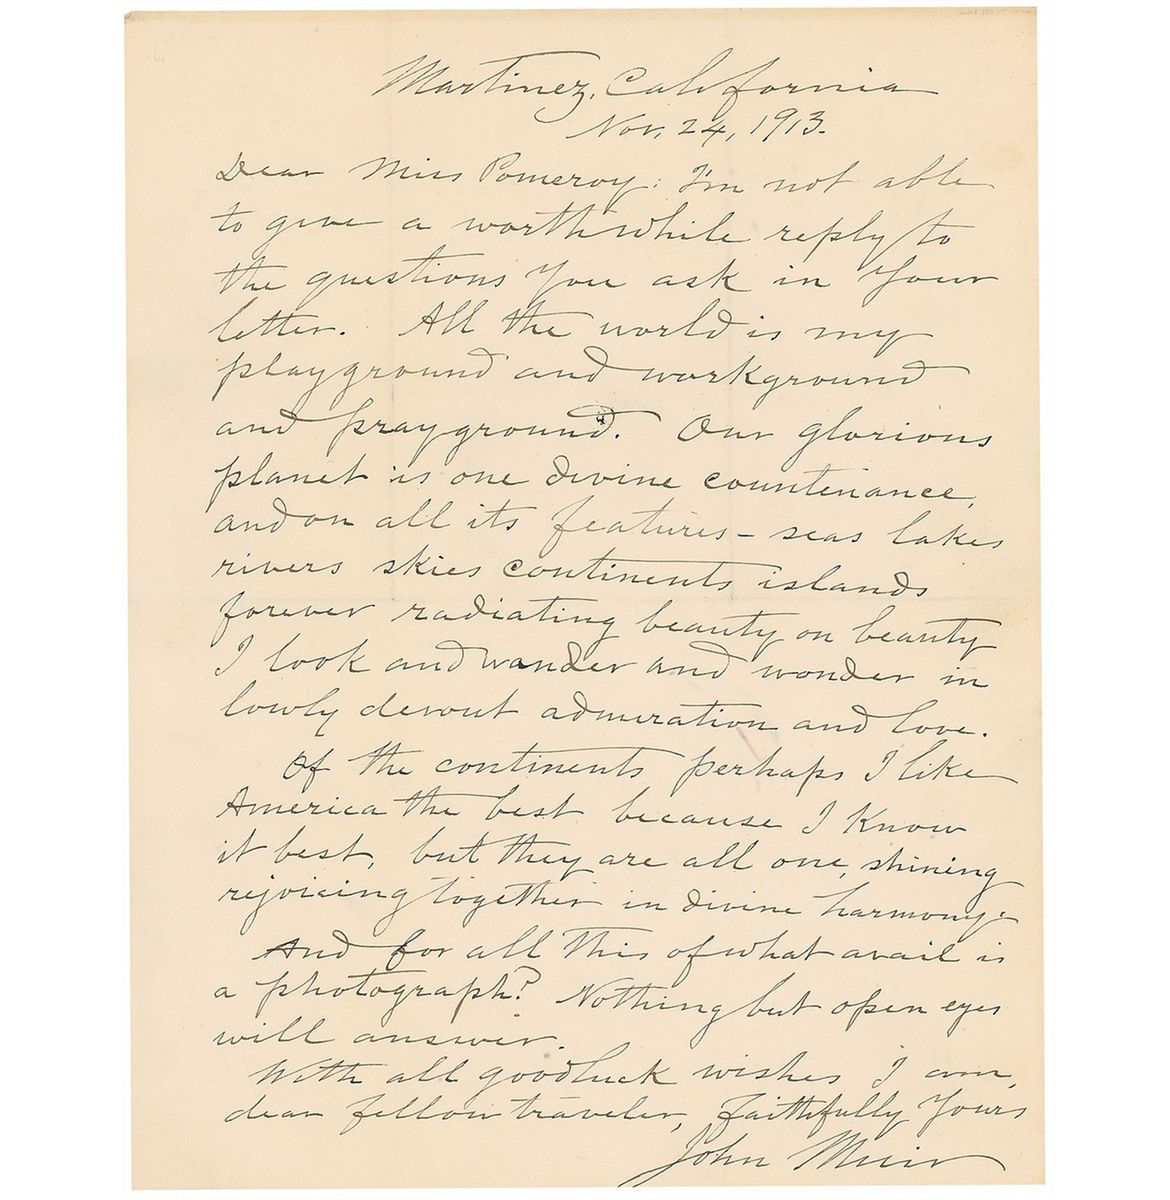 Martinez, California
Nov. 24, 1913.
Dear Miss Pomeroy: I'm not able
to give a worthwhile reply to
the questions you ask in your
letter. All the world is my
playground and workground
and prayground. Our glorious
planet is one divine countenance,
and on all its features – seas lakes
rivers skies continents islands
forever radiating beauty on beauty
I look and wander and wonder in
lowly devout admiration and love.
Of the continents perhaps I like
America the best because I know
it best, but they are all one, shining
rejoicing together in divine harmony.
And for all this of what avail is
a photograph? Nothing but open eyes
will answer.
With all goodluck wishes I am,
dear fellow traveler, Faithfully Yours
John Muir